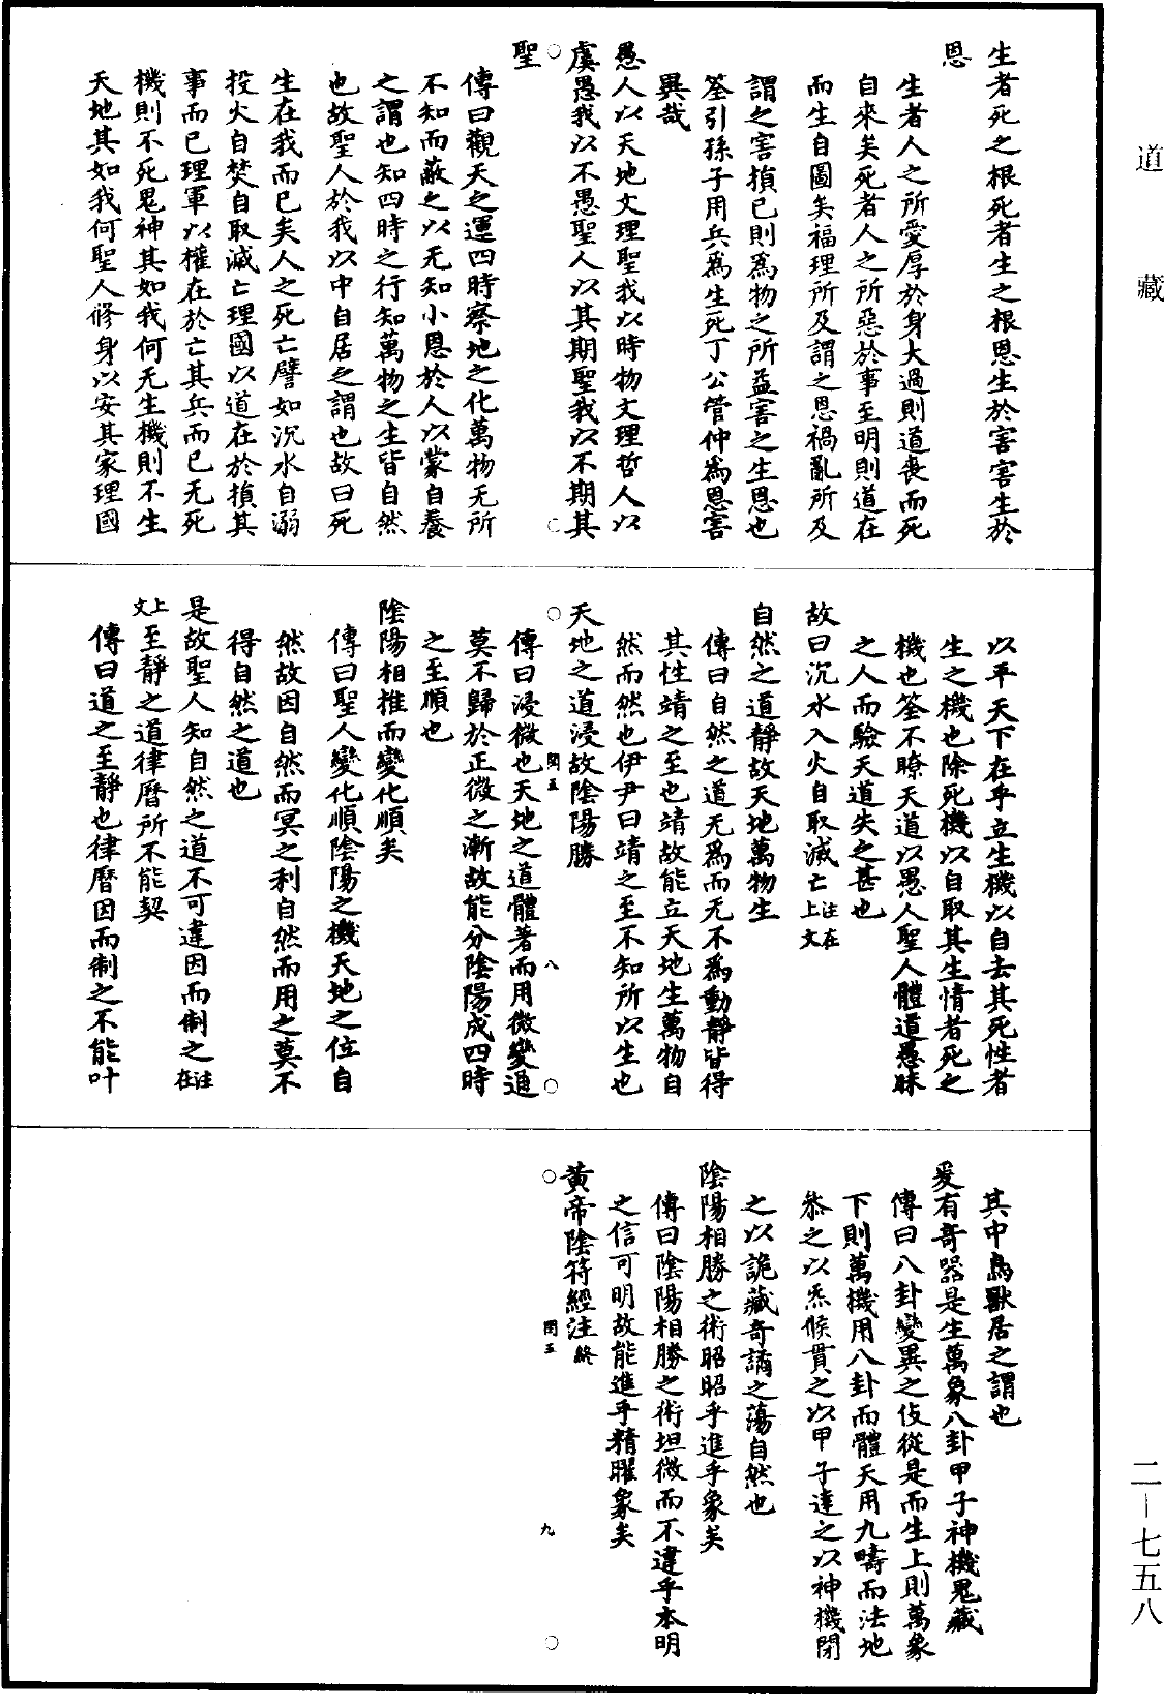 道藏
生者死之根死者生之根恩生於害害生於
恩
生者人之所愛厚於身大過則道喪而死
自來矣死者人之所惡於事至明則道在
而生自圖矣福理所及謂之恩禍亂所及
謂之害損已則為物之所益害之生恩也
筌引孫子用兵為生死丁公管仲為恩害
異哉
愚人以天地文理聖我以時物文理哲人以
虞愚我以不愚聖人以其期聖我以不期其
聖
傳曰觀天之運四時察地之化萬物无所
不知而蔽之以无知小恩於人以蒙自養
之謂也知四時之行知萬物之生皆自然
也故聖人於我以中自居之謂也故曰死
生在我而已矣人之死亡譬如沉水自溺
投火自焚自取滅亡理國以道在於損其
事而已理軍以權在於亡其兵而已无死
機則不死鬼神其如我何无生機則不生
天地其如我何聖人修身以安其家理國
以平天下在乎立生機以自去其死性者
生之機也除死機以自取其生情者死之
機也筌不瞭天道以愚人聖人體道愚昧
之人而驗天道失之甚也
故曰沉水入火自取滅亡注在上文
自然之道靜故天地萬物生
傳曰自然之道无為而无不為動靜皆得
其性靖之至也靖故能立天地生萬物自
然而然也伊尹曰靖之至不知所以生也
天地之道浸故陰陽勝
閏五 八
傳曰浸微也天地之道體著而用微變通
莫不歸於正微之漸故能分陰陽成四時
之至順也
陰陽相推而變化順矣
傳曰聖人變化順陰陽之機天地之位自
然故因自然而冥之利自然而用之莫不
得自然之道也
是故聖人知自然之道不可違因而制之注在
上文至靜之道律曆所不能契
傳曰道之至靜也律曆因而制之不能叶
其中鳥獸居之謂也
爰有奇器是生萬象八卦甲子神機鬼藏
傳曰八卦變異之伎從是而生上則萬象
下則萬機用八卦而體天用九疇而法地
叅之以炁候貫之以甲子達之以神機閉
之以詭藏奇譎之蕩自然也
陰陽相勝之術昭昭乎進乎象矣
傳曰陰陽相勝之術坦微而不違乎本明
之信可明故能進乎精曜象矣
黃帝陰符經注終
閏五 九
二―七五八